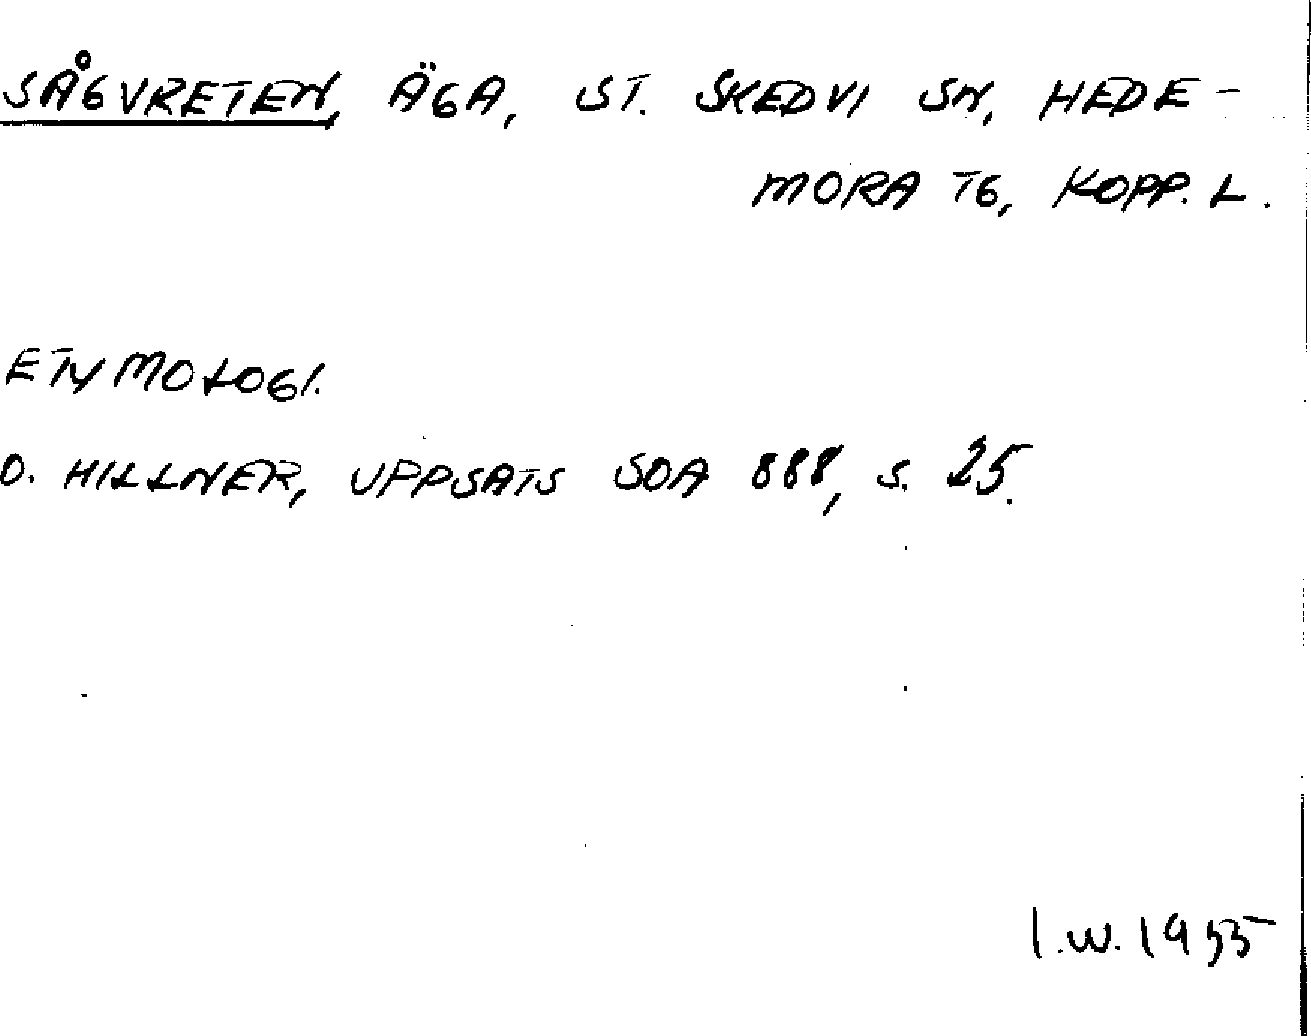 SÅGVRETEN, ÄGA, ST. SKEDVI SN, HEDE-
MORA TG, KOPP. L.
ETYMOLOGI.
O. HILLNER, UPPSATS SOA 888, S. 25.
I.W. 1955